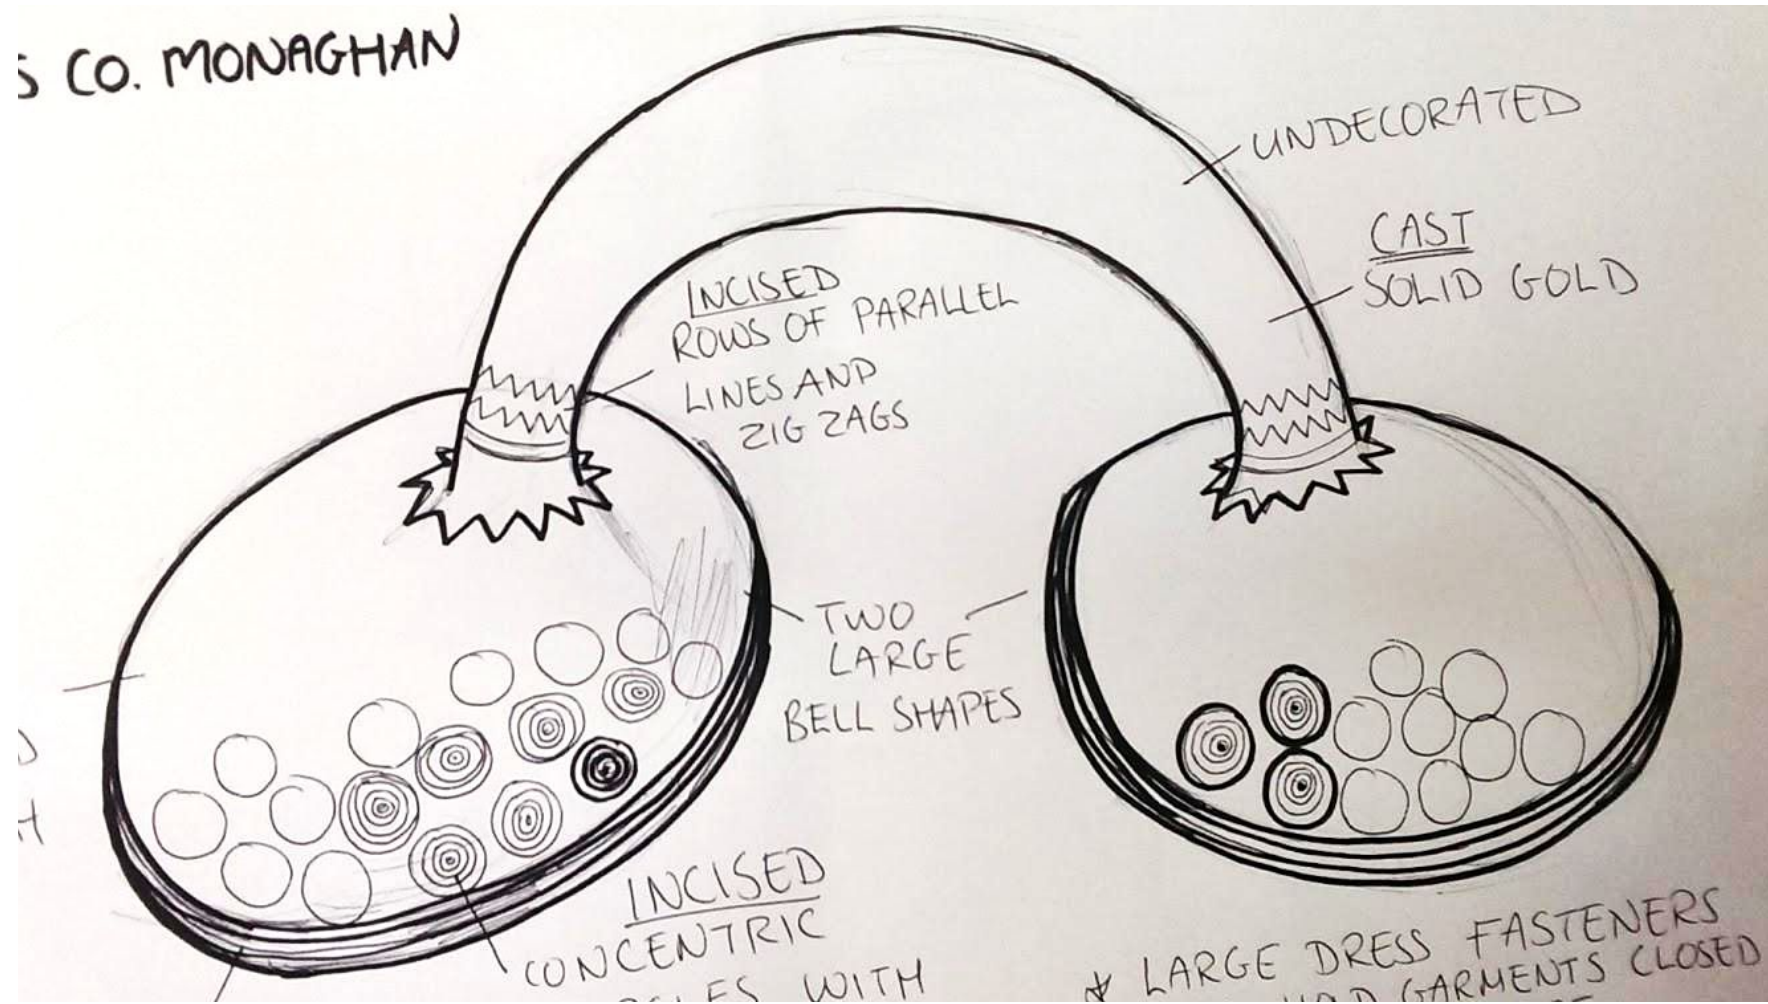 CO. MONAGHAN
UNDECORATED
CAST
SOLID GOLD
INCISED
ROWS OF PARALLEL
LINES AND
ZIG ZAGS
TWO
LARGE
BELL SHAPES
INCISED
CONCENTRIC
WITH
* LARGE DRESS FASTENERS
GARMENTS CLOSED